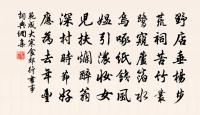 野店垂楊步
荒祠苦竹叢
鷺窺蘆箔水
烏啄紙錢風
媼引濃妝女
兒扶爛醉翁
深村時節好
應為去年豐
范成大寒食郊行書事
詞典網集